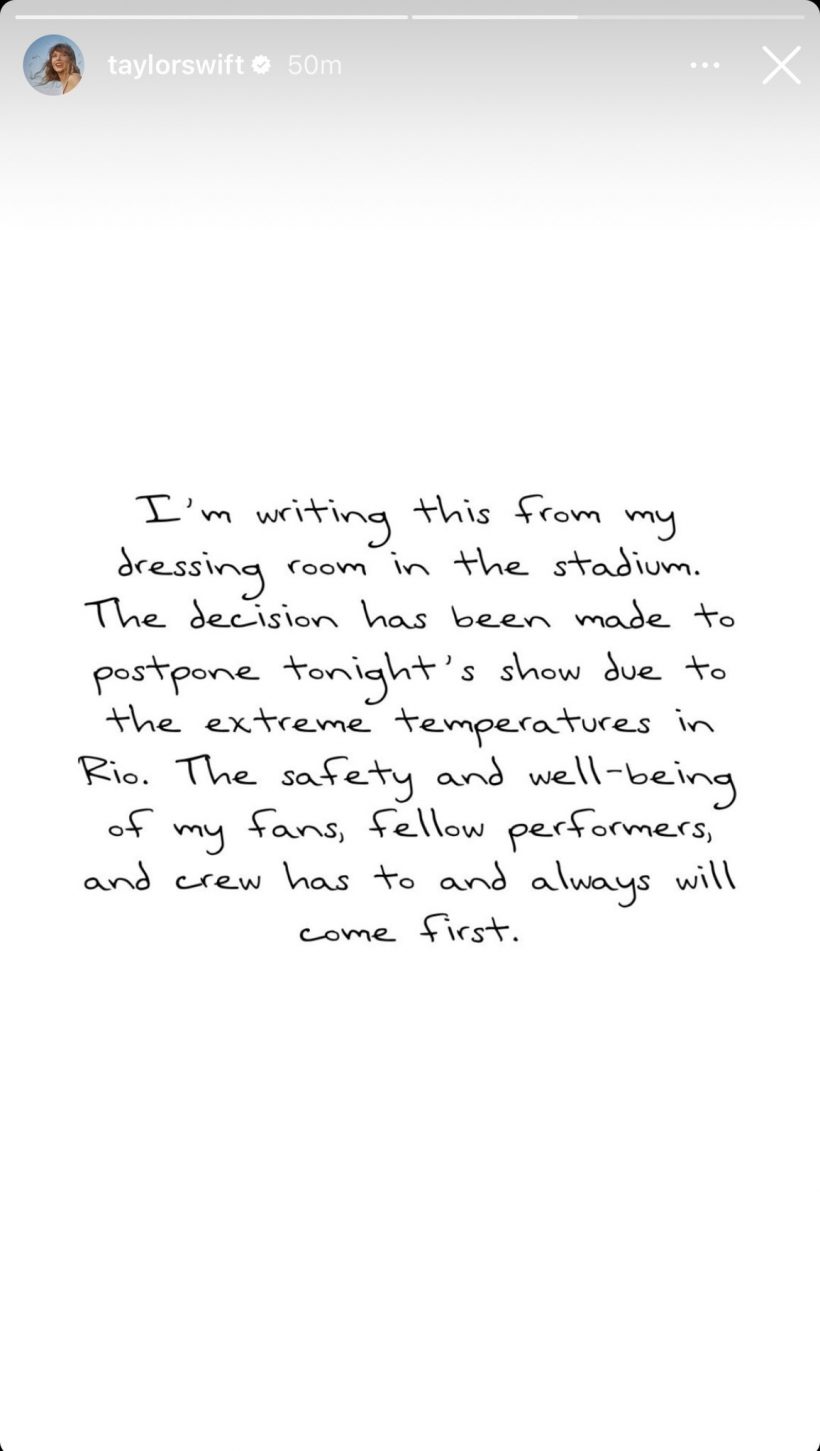 taylorswift 50m
I'm writing this from my
dressing room in the stadium.
The decision has been made to
postpone tonight's show due to
the extreme temperatures in
Rio. The safety and well-being
of my fans, fellow performers,
and crew has to and always will
come first.